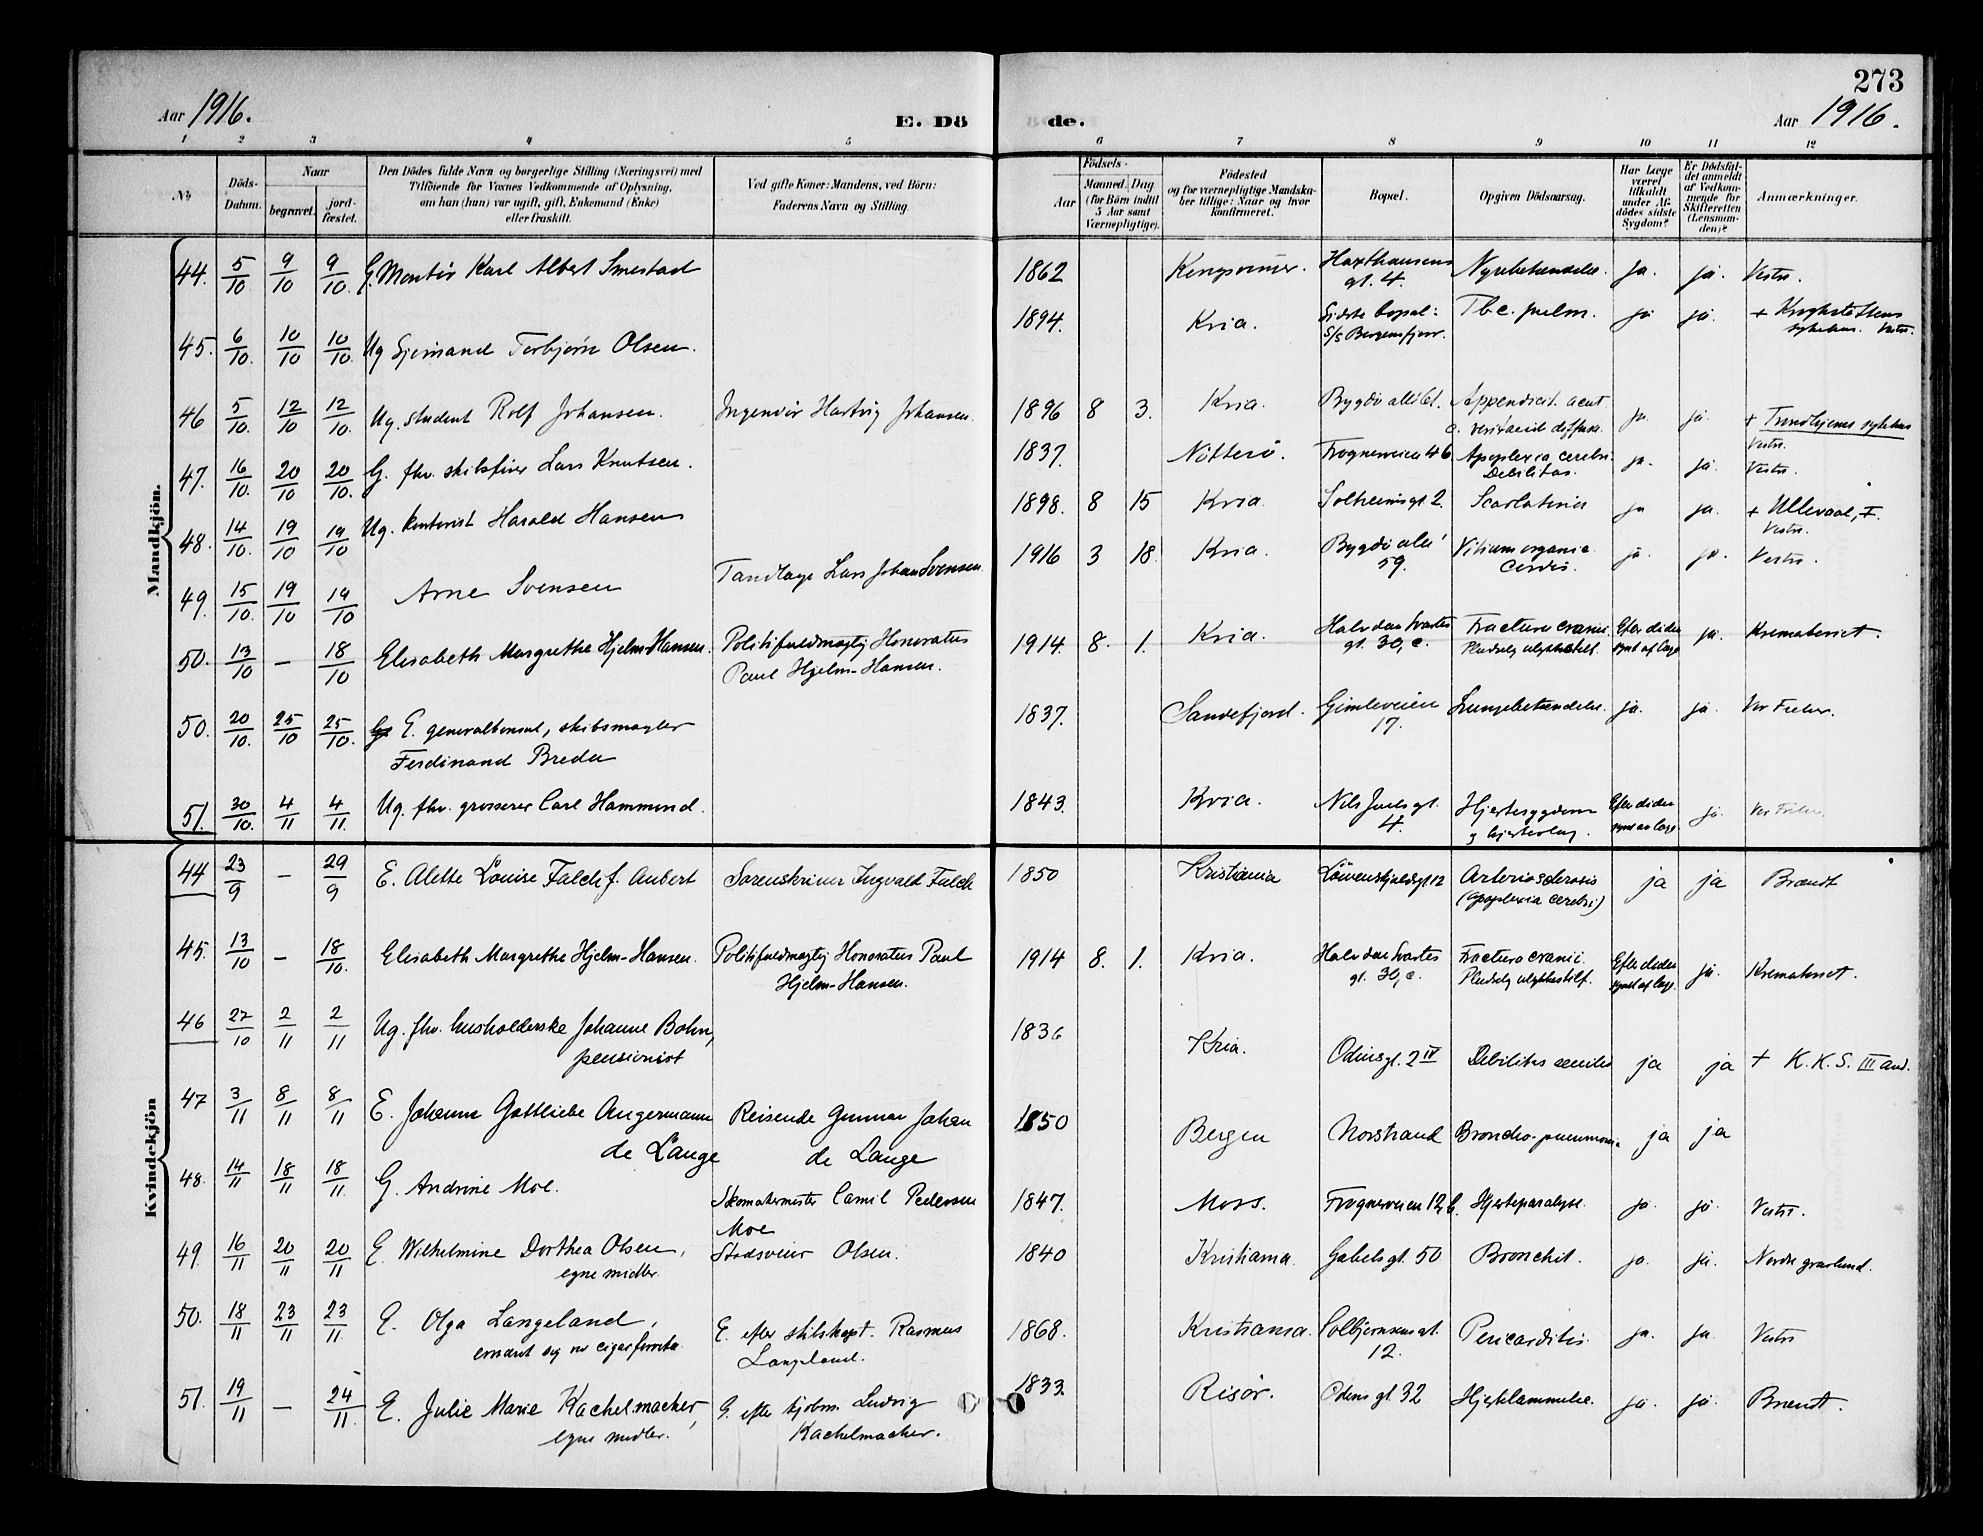 273
Aar 1916. E. Dö de. Aar 1916.
1 2 3 4 5 6 7 8 9 10 11 12
No
Döds-Datum.
Naar
begravet.
jord-fæstet.
Den Dödes fulde Navn og borgerlige Stilling (Næringsvei) med
Tilföiende for Voxnes Vedkommende af Oplysning,
om han (hun) var ugift, gift, Enkemand (Enke)
eller fraskilt.
Ved gifte Koner: Mandens, ved Börn:
Faderens Navn og Stilling.
Födsels-
Aar
Maaned. Dag
(for Börn indtil
5 Aar samt
Værnepligtige).
Födested
og for værnepligtige Mandska-
ber tillige: Naar og hvor
konfirmeret.
Bopæl.
Opgiven Dödsaarsag.
Har Læge
været
tilkaldt
under Af-
dödes sidste
Sygdom?
Er Dödsfal-
det anmeldt
af Vedkom-
mende for
Skifteretten
(Lensman-
den)?
Anmærkninger.
Mandkjön.
44. 5/10 9/10 9/10. G. Montör Karl Albert Smestad 1862 Kongsvinger. Haxthausens gt. 4. Nyrebetændelse. ja. ja. Vestre.
45. 6/10. 10/10 10/10. Ug Sjömand Torbjörn Olsen. 1894. Kria. Sidste bopæl: S/S Bergensfjord. Tbc. pulm. ja ja. + Krohgstöttens sykehus. Vestre.
46 5/10. 12/10 12/10. Ug. student Rolf Johansen. Ingeniör Hartvig Johansen. 1896 8 3. Kria. Bygdö allé 61. Appendicit. acut c. diffusa. ja. ja. + Trondhjems sykehus Vestre.
47. 16/10. 20/10 20/10. G. fhv. skibsförer Lars Knutsen. 1837. Nötterö. Frognerveien 46 Apoplexia cerebri. Debilitas. ja. ja. Vestre.
48. 14/10. 19/10 19/10 Ug. kontorist Harald Hansen 1898. 8 15 Kria. Solheimsgt 2. Scarlatina ja ja. + Ullevaal, I. Vestre.
49. 15/10. 19/10 19/10 Arne Svensen Tandlæge Lars Johan Svensen. 1916 3 18. Kria. Bygdö allé 59. Vitium organic. Cordis. ja. ja. Vestre.
50. 13/10 – 18/10 Elisabeth Margrethe Hjelm-Hansen. Politifuldmægtig Honoratus Paul Hjelm-Hansen. 1914. 8. 1. Kria. Halvdan Svartes gt. 30, c. Fractura cranii. Pludselig ulykkestilf. Efter döden synet af læge ja. Krematoriet.
50. 20/10. 25/10 25/10. E. generalkonsul, skibsmægler Ferdinand Breder 1837. Sandefjord. Gimleveien 17. Lungebetændelse. ja. ja. Vor Frelser.
51. 30/10. 4/11 4/11. Ug. fhv. grosserer Carl Hammond. 1843. Kria. Nils Juels gt. 4. Hjertesygdom og hjerteslag. Efter döden synet av læge. ja. Vor Frelser.
Kvindekjön
44 23/9 – 29/9 E. Alette Louise Falch f. Aubert Sorenskriver Ingvald Falch 1850 Kristiania Lövenskjoldsgt 12 Arteriosclerosis (Apoplexia cerebri) ja ja Brændt
45. 13/10 – 18/10. Elisabeth Margrethe Hjelm-Hansen. Politifuldmægtig Honoratus Paul Hjelm-Hansen. 1914 8. 1. Kria. Halvdan Svartes gt. 30, c. Fractura cranii. Pludselig ulykkestilf. Efter döden synet af læge. ja. Krematoriet.
46 27/10 2/11 2/11 Ug. fhv. husholderske Johanne Bohn, pensionist 1836 Kria. Odinsgt. 2 IV Debilitas senilis ja ja + K. K. S. III avd.
47 3/11 8/11 8/11 E. Johanne Gottliebe Angermann de Lange Reisende Gunnar Johan de Lange 1850 Bergen Norstrand Broncho-pneumoni. ja ja
48. 14/11 18/11 18/11. G. Andrine Moe. Skomakermester Camil Pedersen Moe 1847. Moss. Frognerveien 12, b. Hjerteparalyse. ja. ja. Vestre.
49. 16/11 20/11 20/11 E Wilhelmine Dorthea Olsen, egne midler. Stadsveier Olsen. 1840 Kristiania. Gabels gt. 50 Bronchit. ja. ja. Nordre gravlund.
50. 18/11 23/11 23/11. E. Olga Langeland, ernært sig av cigarforretn. E. efter skibskapt. Rasmus Langeland. 1868. Kristiania. Solbjörnsens gt. 12. Pericarditis. ja. ja. Vestre
51. 19/11 – 24/11. E. Julie Marie Kachelmacher, egne midler. E. efter kjøbm. Ludvig Kachelmacher. 1833 Risör. Odins gt. 32 Hjertelammelse. ja. ja. Brændt.